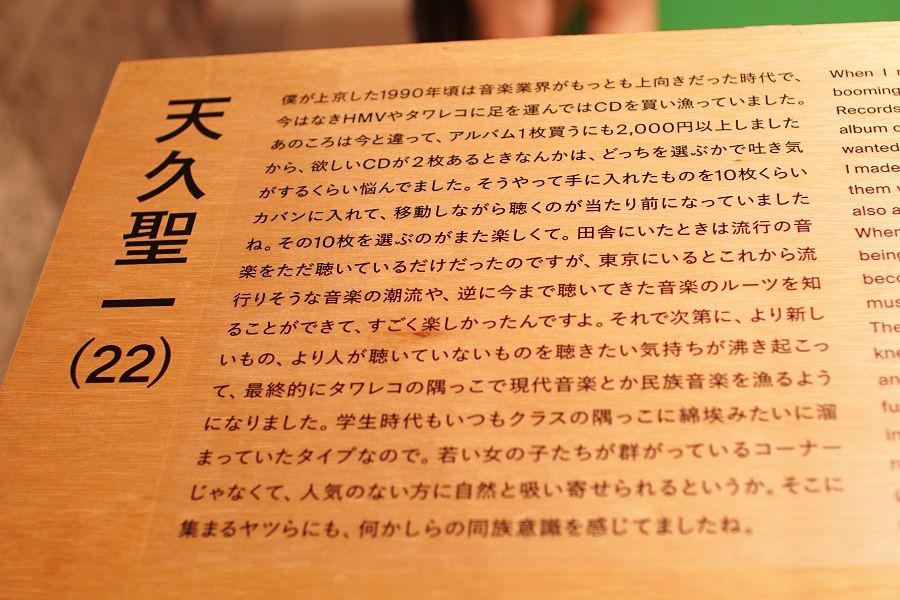 天久聖一
(22)
僕が上京した1990年頃は音楽業界がもっとも上向きだった時代で、
今はなきHMVやタワレコに足を運んではCDを買い漁っていました。
あのころは今と違って、アルバム1枚買うにも2,000円以上しました
から、欲しいCDが2枚あるときなんかは、どっちを選ぶかで吐き気
がするくらい悩んでました。そうやって手に入れたものを10枚くらい
カバンに入れて、移動しながら聴くのが当たり前になっていました
ね。その10枚を選ぶのがまた楽しくて。田舎にいたときは流行の音
楽をただ聴いているだけだったのですが、東京にいるとこれから流
行りそうな音楽の潮流や、逆に今まで聴いてきた音楽のルーツを知
ることができて、すごく楽しかったんですよ。それで次第に、より新し
いもの、より人が聴いていないものを聴きたい気持ちが沸き起こっ
て、最終的にタワレコの隅っこで現代音楽とか民族音楽を漁るよう
になりました。学生時代もいつもクラスの隅っこに綿埃みたいに溜
まっていたタイプなので。若い女の子たちが群がっているコーナー
じゃなくて、人気のない方に自然と吸い寄せられるというか。そこに
集まるヤツらにも、何かしらの同族意識を感じてましたね。
When I
booming
Records
album
wanted
I made
them
also a
When
being
The